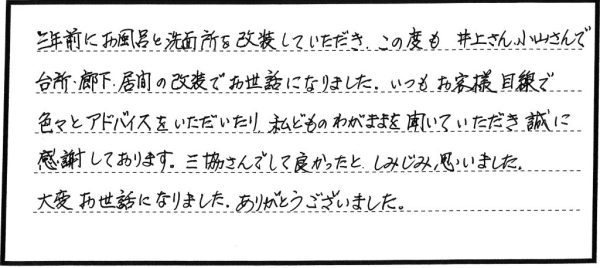 三年前にお風呂と洗面所を改装していただき、この度も 井上さん、小山さんで
台所・廊下・居間の改装でお世話になりました。いつもお客様目線で
色々とアドバイスをいただいたり、私どものわがままを聞いていただき誠に
感謝しております。三協さんでして良かったと、しみじみ思いました。
大変お世話になりました。ありがとうございました。